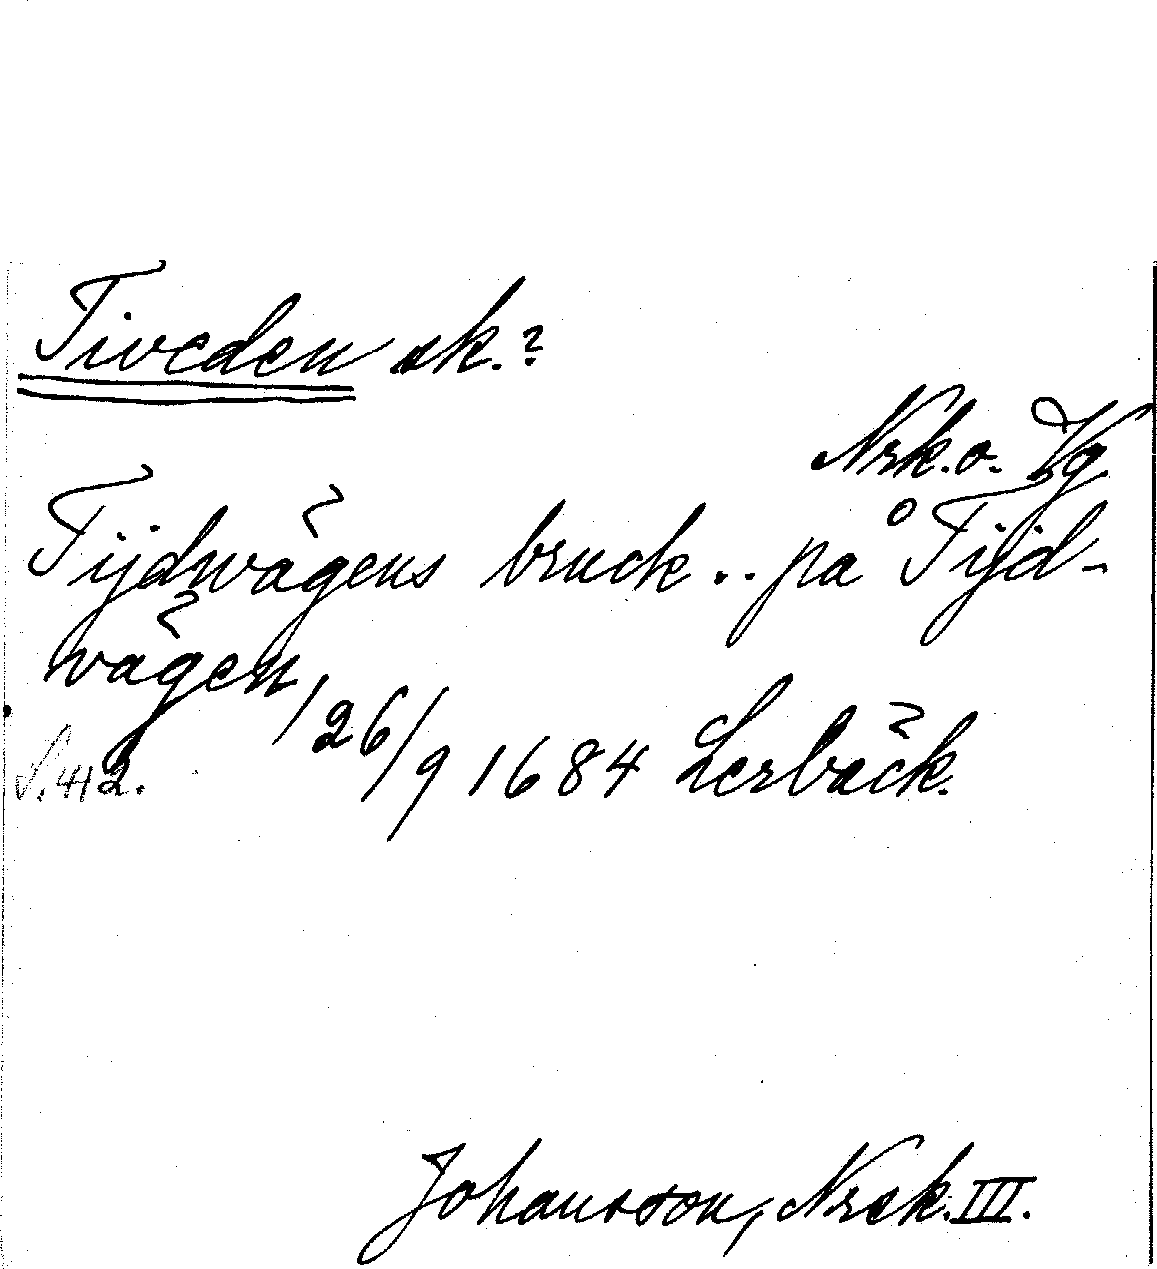 Tiveden sk.?
Nrk. o. Vg
Tijdwägens bruck .. på Tijd-
wägen
26/9 1684 Lerbäck.
S. 412.
Johansson, Nrek. III.